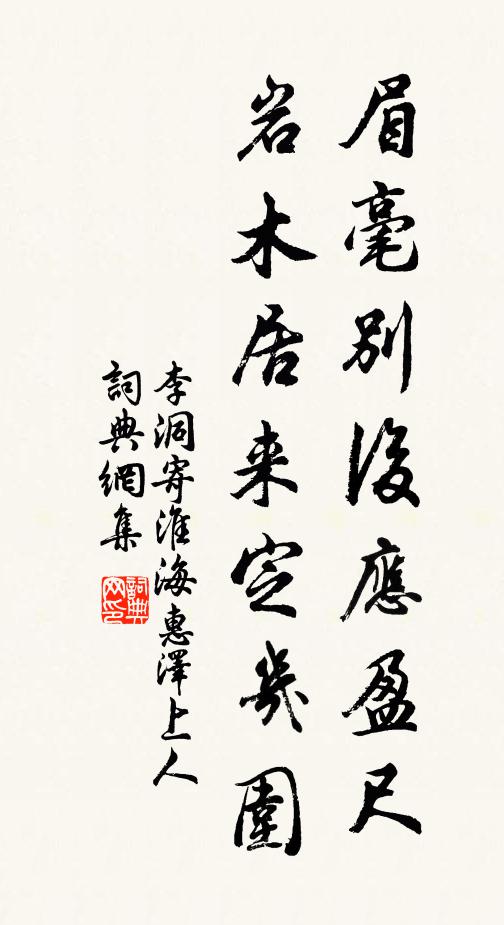 眉毫別後應盈尺
岩木居来定幾圍
李洞寄淮海惠澤上人
詞典網集
詞典網印